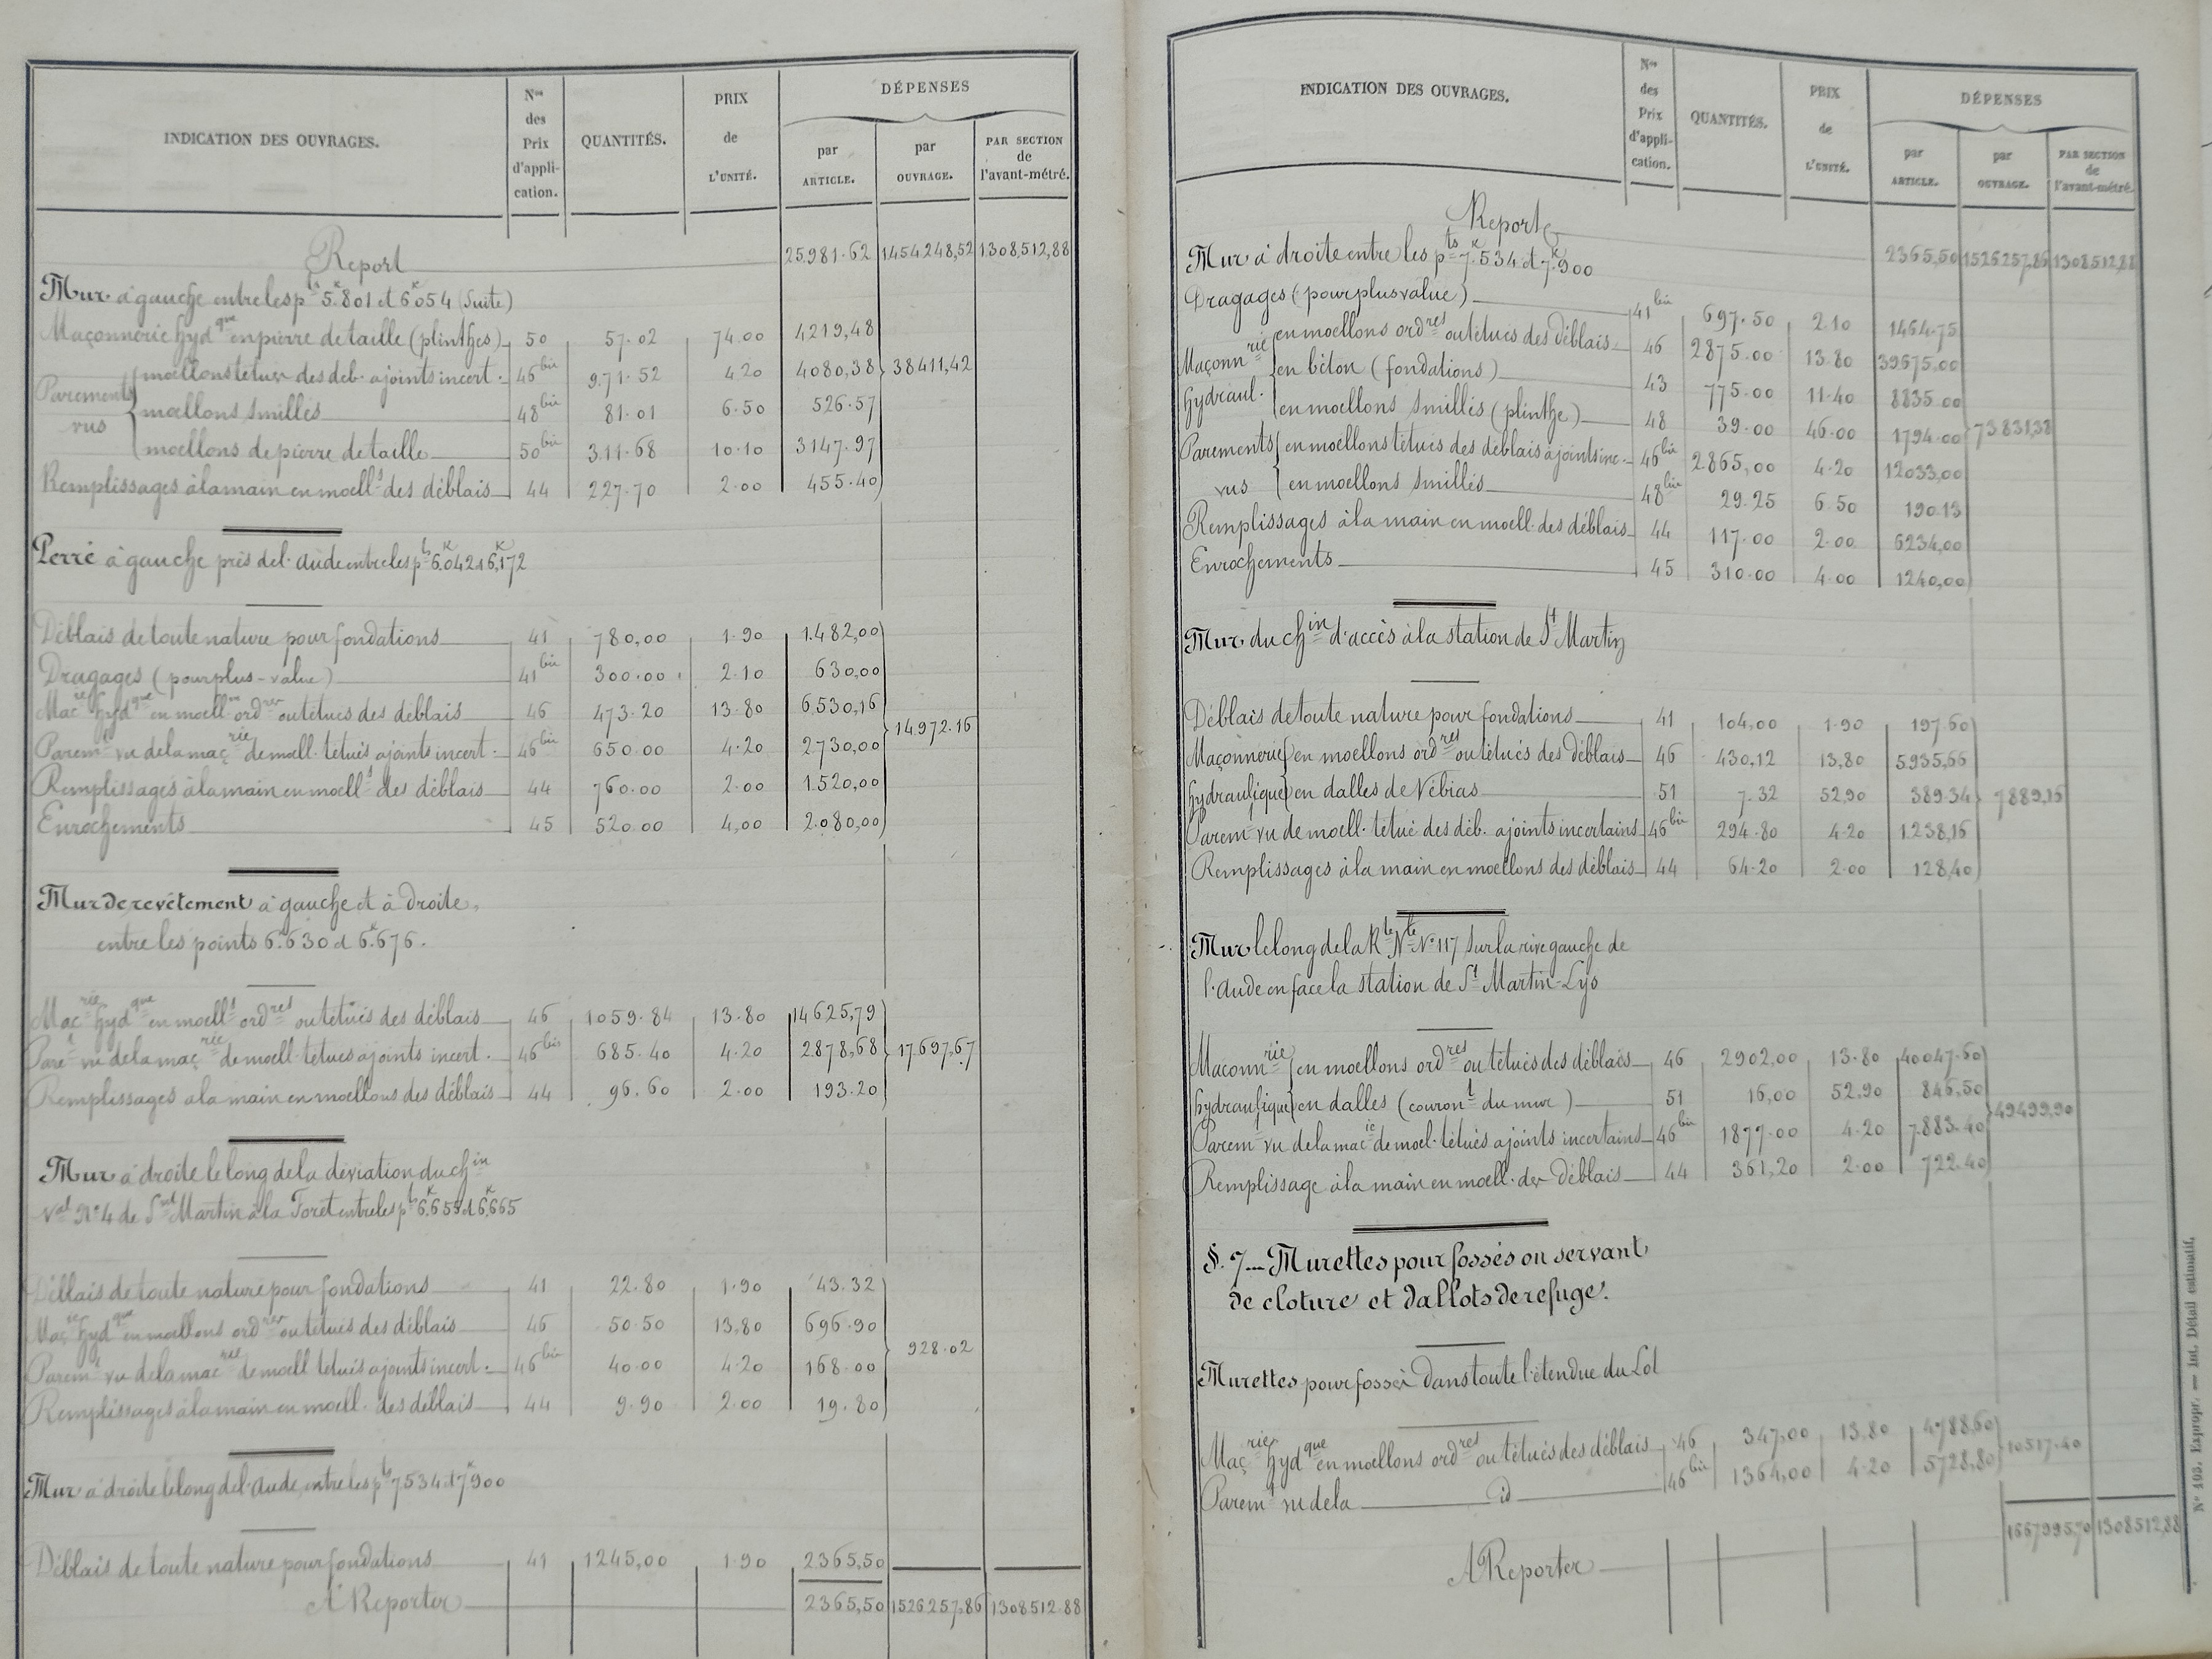 INDICATION DES OUVRAGES. Nos des Prix d'appli-cation. QUANTITÉS. PRIX de L'UNITÉ. DÉPENSES par ARTICLE. par OUVRAGE. PAR SECTION de l'avant-métré.
Report 25.981.62 1454248,52 1308,512,88
Mur à gauche entre les pts 5k801 et 6k054 (Suite)
Maçonnerie hydque en pierre de taille (plinthes) 50 57.02 74.00 4219,48
Parements vus moellons têtués des déb. à joints incert. 46bis 971.52 4.20 4080,38 38411,42
moellons smillés 48bis 81.01 6.50 526.57
moellons de pierre de taille 50bis 311.68 10.10 3147.97
Remplissages à la main en moells des déblais 44 227.70 2.00 455.40
Perré à gauche près de l'Aude entre les pts 6k042 et 6k172
Déblais de toute nature pour fondations 41 780,00 1.90 1.482,00
Dragages (pour plus-value) 41bis 300.00 2.10 630,00
Macrie hydque en moelln ordres ou têtués des déblais 46 473.20 13.80 6,530,16
14972.16
Paremt vu de la maçrie de moell. têtués à joints incert. 46bis 650.00 4.20 2.730,00
Remplissages à la main en moells des déblais 44 760.00 2.00 1.520,00
Enrochements 45 520.00 4,00 2.080,00
Mur de revêtement à gauche et à droite,
entre les points 6k630 et 6k676.
Macrie hydque en moells ordres ou têtués des déblais 46 1059.84 13.80 14625,79
Paret vu de la maçrie de moell. têtués à joints incert. 46bis 685.40 4.20 2.878,68 17.697,67
Remplissages à la main en moellons des déblais 44 96.60 2.00 193.20
Mur à droite le long de la déviation du chin
val No 4 de St Martin à la Foret entre les pts 6k655 et 6k665
Déblais de toute nature pour fondations 41 22.80 1.90 43.32
Maçrie hydque en moellons ordres ou têtués des déblais 46 50.50 13,80 696.90
928.02
Paremt vu de la macrie de moell têtués à joints incert. 46bis 40.00 4.20 168.00
Remplissages à la main en moell. des déblais 44 9.90 2.00 19.80
Mur à droite le long de l'Aude, entre les pts 7k534 et 7k900
Déblais de toute nature pour fondations 41 1245,00 1.90 2365,50
A Reporter 2365,50 1526257,86 1308512.88
INDICATION DES OUVRAGES. Nos des Prix d'appli-cation. QUANTITÉS. PRIX de L'UNITÉ. DÉPENSES par ARTICLE. par OUVRAGE. PAR SECTION de l'avant-métré.
Report 2365,50 1526257,86 1308512,88
Mur à droite entre les pts 7k534 et 7k900
Dragages (pour plus value) 41bis 697.50 2.10 1464.75
Maçonnrie hydraul. en moellons ordres ou têtués des déblais 46 2875.00 13.80 39675,00
en béton (fondations) 43 775.00 11.40 8835.00
en moellons smillés (plinthe) 48 39.00 46.00 1794.00 73831,38
Parements vus en moellons têtués des déblais à joints inc. 46bis 2.865,00 4.20 12033,00
en moellons smillés 48bis 29.25 6.50 190.13
Remplissages à la main en moell. des déblais 44 117.00 2.00 6234,00
Enrochements 45 310.00 4.00 1240,00
Mur du chin d'accès à la station de St Martin
Déblais de toute nature pour fondations 41 104,00 1.90 197.60
Maçonnerie hydraulique en moellons ordres ou têtués des déblais 46 430,12 13,80 5935,66
en dalles de Nébias 51 7.32 52,90 389.34 7889,16
Paremt vu de moell. têtué des déb. à joints incertains 46bis 294.80 4.20 1.238,16
Remplissages à la main en moellons des déblais 44 64.20 2.00 128,40
Mur le long de la Rte Nle No 117 sur la rive gauche de
l'Aude en face la station de St Martin-Lys
Maçonnrie hydraulique en moellons ordres ou têtués des déblais 46 2902,00 13.80 40047.60
en dalles (couront du mur) 51 16,00 52.90 846,50
49499,90
Paremt vu de la macie de moel. têtués à joints incertains 46bis 1877.00 4.20 7.883.40
Remplissage à la main en moell. des déblais 44 361,20 2.00 722.40
§. 7 Murettes pour fossés ou servant
de cloture et dallots de refuge.
Murettes pour fossés dans toute l'étendue du Lot
Maçrie hydque en moellons ordres ou têtués des déblais 46 347,00 13.80 4788,60
10517.40
Paremt vu de la id 46bis 1364,00 4.20 5728,80
A Reporter 1667995,70 1308512,88
No 193. Expropr. — Int. Détail estimatif.